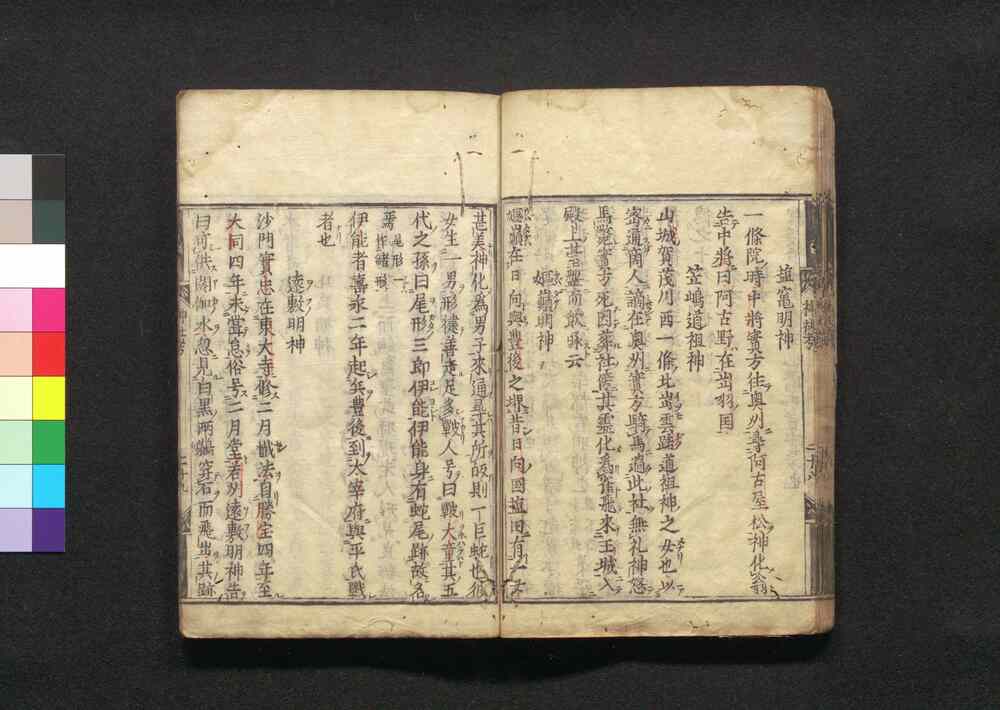 塩竈明神
一條院時中將實方往奥州尋阿古屋松神化翁
告中將曰阿古野在出羽国
笠嶋道祖神
山城賀茂川西一條北出雲路道祖神之女也以
密通商人謫在奥州實方騎馬過此社無礼神怒
馬斃實方死因葬社傍其霊化為雀飛來王城入
殿上其盤而飲啄云
嫗嶽明神
嫗嶽在日向與豊後之堺昔日向国塩田有
甚美神化為男子來通尋其所皈則一巨蛇也彼
女生一男形獲善走足多皸人号曰皸大童其五
代之孫曰尾形三郎伊能伊能身有蛇尾跡故名
焉 尾形一作諸形
伊能者壽永二年起兵豊後到太宰府與平氏戰
者也
遠敷明神
沙門實忠在東大寺修二月懴法自勝宝四年至
大同四年來當息俗号二月堂若刕遠敷明神告
曰可供閼伽水忽見白黒两鸕穿石而飛出其跡